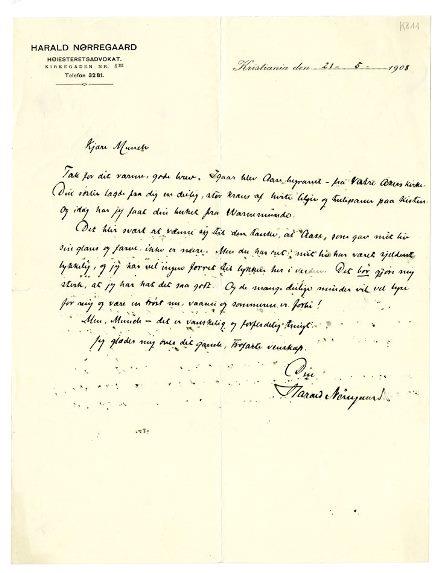 K811
HARALD NØRREGAARD
HØIESTERETSADVOKAT.
KIRKEGADEN NR. 1 III
Telefon 3281.
Kristiania den 21 - 5 - 1908
Kjære Munch
Tak for dit varme, gode brev. Igaar blev Aase begravet – fra Vestre Akers kirke.
Din søster lagde fra dig en deilig, stor krans af hvite liljer og tulipaner paa kisten
Og idag har jeg faat din hilsen fra Warnemünde.
Det blir svært at vænne sig til den tanke, at Aase, som gav mit liv
sin glans og farve ikke er mere. Men du har ret; mit liv har været sjeldent
lykkelig, og jeg har vel ingen forret til lykken her i verden. Det bør gjøre mig
sterk, at jeg har hat det saa godt. Og de mange deilige minder vil vel lyse
for mig og være en trøst nu, vaaren og sommeren er forbi!
Men, Munch – det er vanskelig og forferdelig tungt.
Jeg glæder mig over dit gamle, trofaste venskap.
Din
Harald Nørregaard.